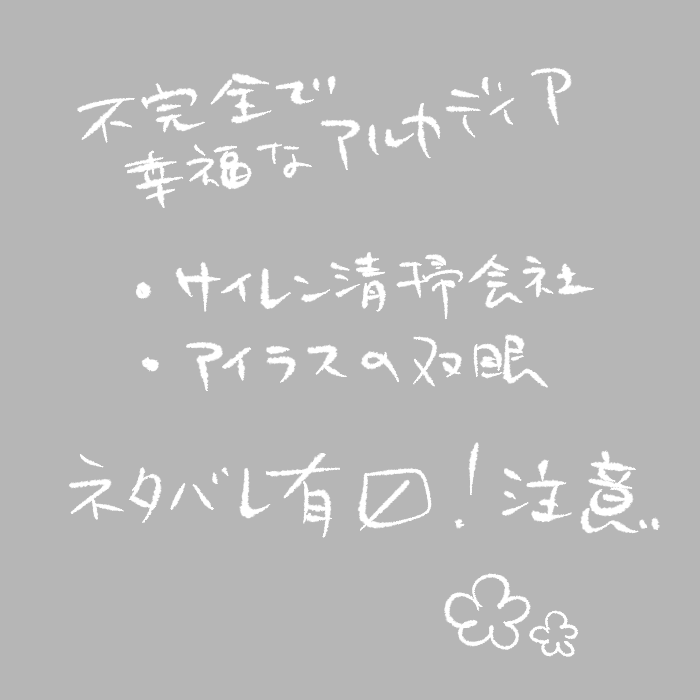 不完全で
幸福なアルカディア
・サイレン清掃会社
・アイラスの双眼
ネタバレ有〼!注意